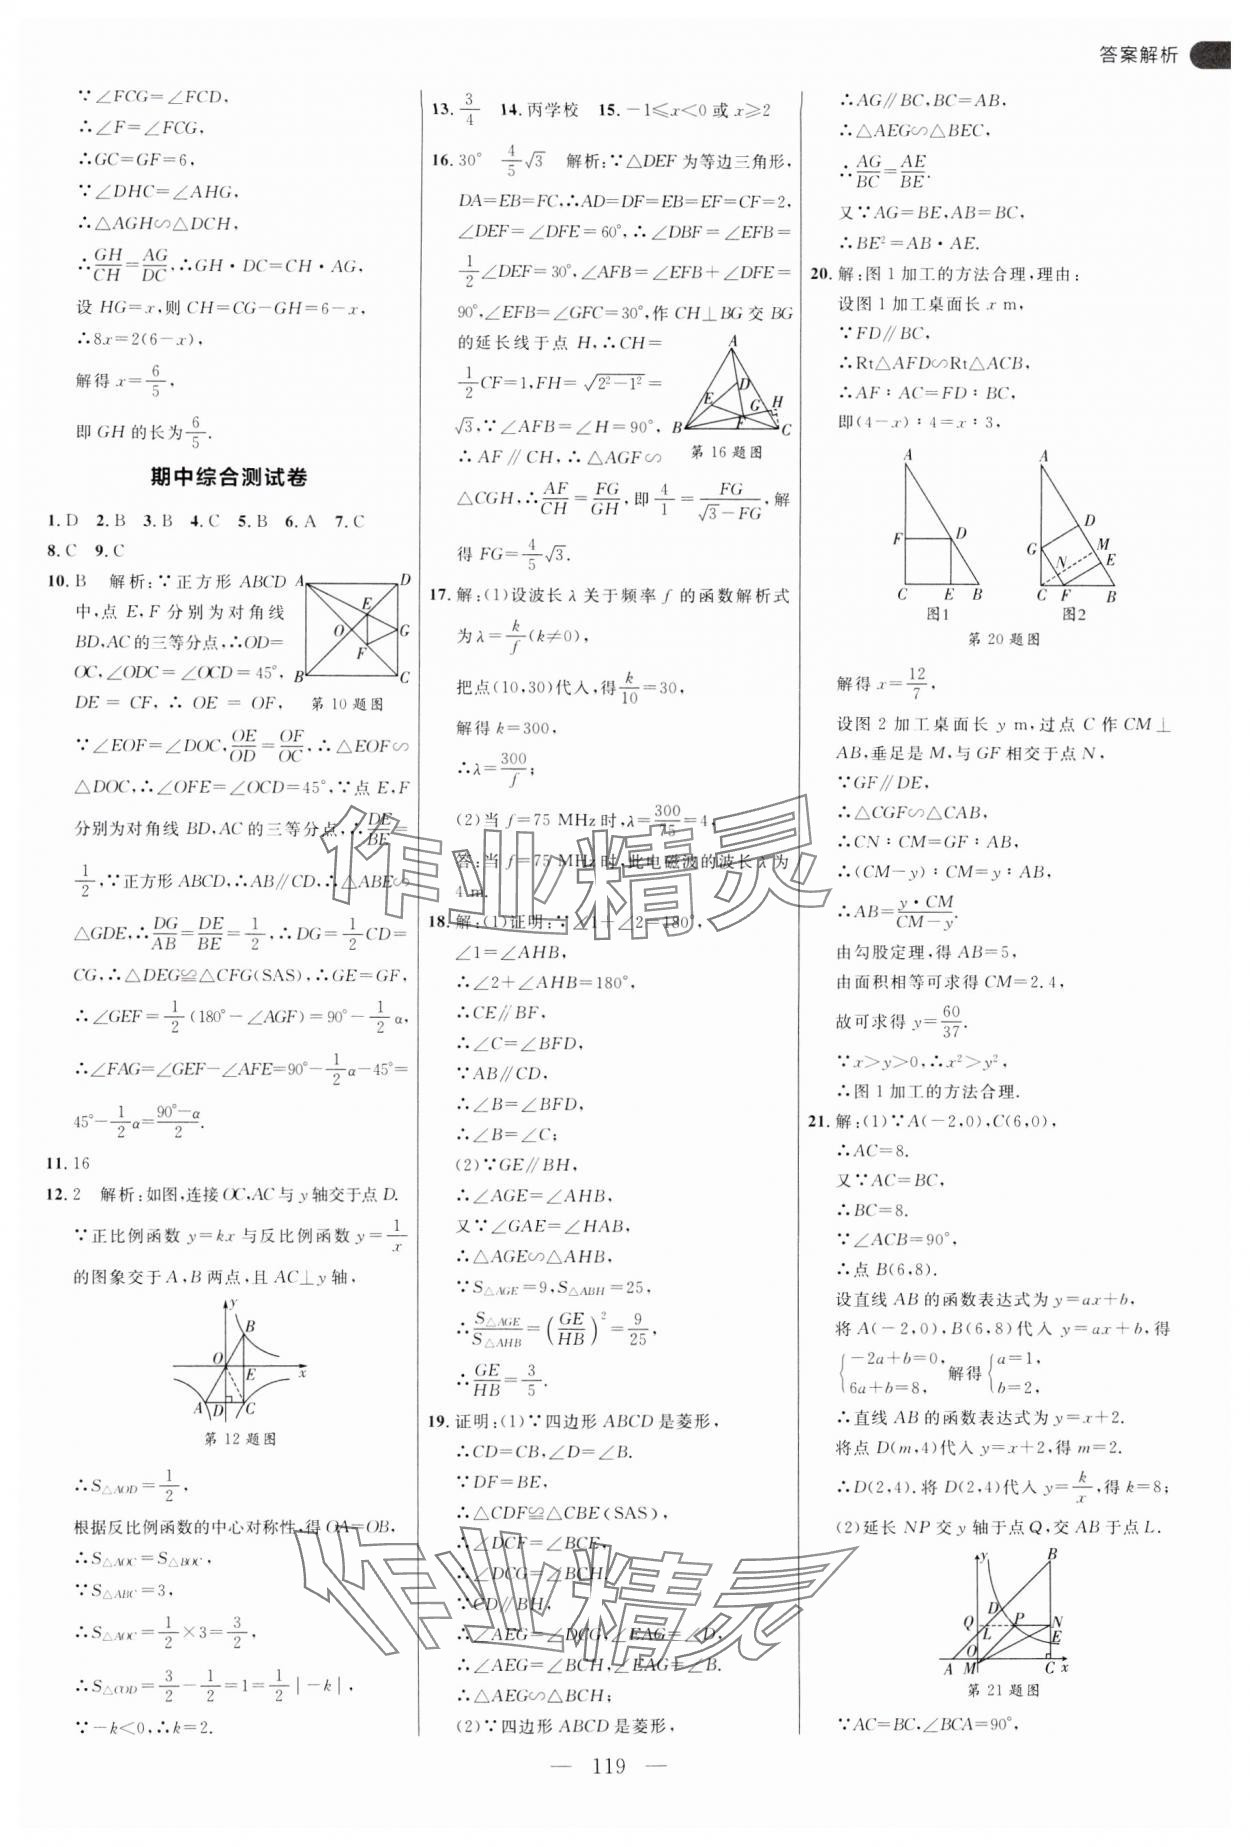 答案解析
∵∠FCG=∠FCD,
∴∠F=∠FCG,
∴GC=GF=6,
∵∠DHC=∠AHG,
∴△AGH∽△DCH,
∴GH/CH=AG/DC,∴GH·DC=CH·AG,
设 HG=x,则 CH=CG-GH=6-x,
∴8x=2(6-x),
解得 x=6/5,
即 GH 的长为6/5.
期中综合测试卷
1. D 2. B 3. B 4. C 5. B 6. A 7. C
8. C 9. C
10. B 解析:∵正方形 ABCD
中,点 E,F 分别为对角线
BD,AC的三等分点,∴OD=
OC,∠ODC=∠OCD=45°,
DE = CF, ∴ OE = OF,
A D E O G F B C
第 10 题图
∵∠EOF=∠DOC,OE/OD=OF/OC,∴△EOF∽
△DOC,∴∠OFE=∠OCD=45°,∵点 E,F
分别为对角线 BD,AC 的三等分点,∴DE/BE=
1/2,∵正方形 ABCD,∴AB∥CD,∴△ABE∽
△GDE,∴DG/AB=DE/BE=1/2,∴DG=1/2CD=
CG,∴△DEG≌△CFG(SAS),∴GE=GF,
∴∠GEF=1/2(180°-∠AGF)=90°-1/2α,
∴∠FAG=∠GEF-∠AFE=90°-1/2α-45°=
45°-1/2α=90°-α/2.
11. 16
12. 2 解析:如图,连接 OC,AC与 y轴交于点 D.
∵正比例函数 y=kx 与反比例函数 y=1/x
的图象交于 A,B 两点,且 AC⊥y 轴,
y B O E x A D C
第 12 题图
∴S△AOD=1/2,
根据反比例函数的中心对称性,得 OA=OB,
∴S△AOC=S△BOC,
∵S△ABC=3,
∴S△AOC=1/2×3=3/2,
∴S△COD=3/2-1/2=1=1/2|-k|,
∵-k<0,∴k=2.
13. 3/4 14. 丙学校 15. -1≤x<0 或 x≥2
16. 30° 4/5√3 解析:∵△DEF 为等边三角形,
DA=EB=FC,∴AD=DF=EB=EF=CF=2,
∠DEF=∠DFE=60°,∴∠DBF=∠EFB=
1/2∠DEF=30°,∠AFB=∠EFB+∠DFE=
90°,∠EFB=∠GFC=30°,作 CH⊥BG 交 BG
的延长线于点 H,∴CH=
1/2CF=1,FH=√2²-1²=
√3,∵∠AFB=∠H=90°,
∴AF∥CH,∴△AGF∽
A D E G H F B C
第 16 题图
△CGH,∴AF/CH=FG/GH,即4/1=FG/√3-FG,解
得 FG=4/5√3.
17. 解:(1)设波长 λ 关于频率 f 的函数解析式
为 λ=k/f(k≠0),
把点(10,30)代入,得k/10=30,
解得 k=300,
∴λ=300/f;
(2)当 f=75 MHz 时,λ=300/75=4,
答:当 f=75 MHz 时,此电磁波的波长 λ 为
4 m.
18. 解:(1)证明:∵∠1+∠2=180°,
∠1=∠AHB,
∴∠2+∠AHB=180°,
∴CE∥BF,
∴∠C=∠BFD,
∵AB∥CD,
∴∠B=∠BFD,
∴∠B=∠C;
(2)∵GE∥BH,
∴∠AGE=∠AHB,
又∵∠GAE=∠HAB,
∴△AGE∽△AHB,
∵S△AGE=9,S△ABH=25,
∴S△AGE/S△AHB=(GE/HB)²=9/25,
∴GE/HB=3/5.
19. 证明:(1)∵四边形 ABCD 是菱形,
∴CD=CB,∠D=∠B.
∵DF=BE,
∴△CDF≌△CBE(SAS),
∴∠DCF=∠BCE,
∴∠DCG=∠BCH,
∵CD∥BH,
∴∠AEG=∠DCG,∠EAG=∠D,
∴∠AEG=∠BCH,∠EAG=∠B.
∴△AEG∽△BCH;
(2)∵四边形 ABCD 是菱形,
∴AG∥BC,BC=AB,
∴△AEG∽△BEC,
∴AG/BC=AE/BE.
又∵AG=BE,AB=BC,
∴BE²=AB·AE.
20. 解:图 1 加工的方法合理,理由:
设图 1 加工桌面长 x m,
∵FD∥BC,
∴Rt△AFD∽Rt△ACB,
∴AF∶AC=FD∶BC,
即(4-x)∶4=x∶3,
A F D C E B 图1
A D G M N E C F B 图2
第 20 题图
解得 x=12/7,
设图 2 加工桌面长 y m,过点 C 作 CM⊥
AB,垂足是 M,与 GF 相交于点 N,
∵GF∥DE,
∴△CGF∽△CAB,
∴CN∶CM=GF∶AB,
∴(CM-y)∶CM=y∶AB,
∴AB=y·CM/CM-y.
由勾股定理,得 AB=5,
由面积相等可求得 CM=2.4,
故可求得 y=60/37.
∵x>y>0,∴x²>y²,
∴图 1 加工的方法合理.
21. 解:(1)∵A(-2,0),C(6,0),
∴AC=8.
又∵AC=BC,
∴BC=8.
∵∠ACB=90°,
∴点 B(6,8).
设直线 AB 的函数表达式为 y=ax+b,
将 A(-2,0),B(6,8)代入 y=ax+b,得
{-2a+b=0, 6a+b=8, 解得{a=1, b=2,
∴直线 AB 的函数表达式为 y=x+2.
将点 D(m,4)代入 y=x+2,得 m=2.
∴D(2,4).将 D(2,4)代入 y=k/x,得 k=8;
(2)延长 NP 交 y 轴于点 Q,交 AB 于点 L.
y B D P Q N L E O A M C x
第 21 题图
∵AC=BC,∠BCA=90°,
— 119 —
作业精灵
作业精灵